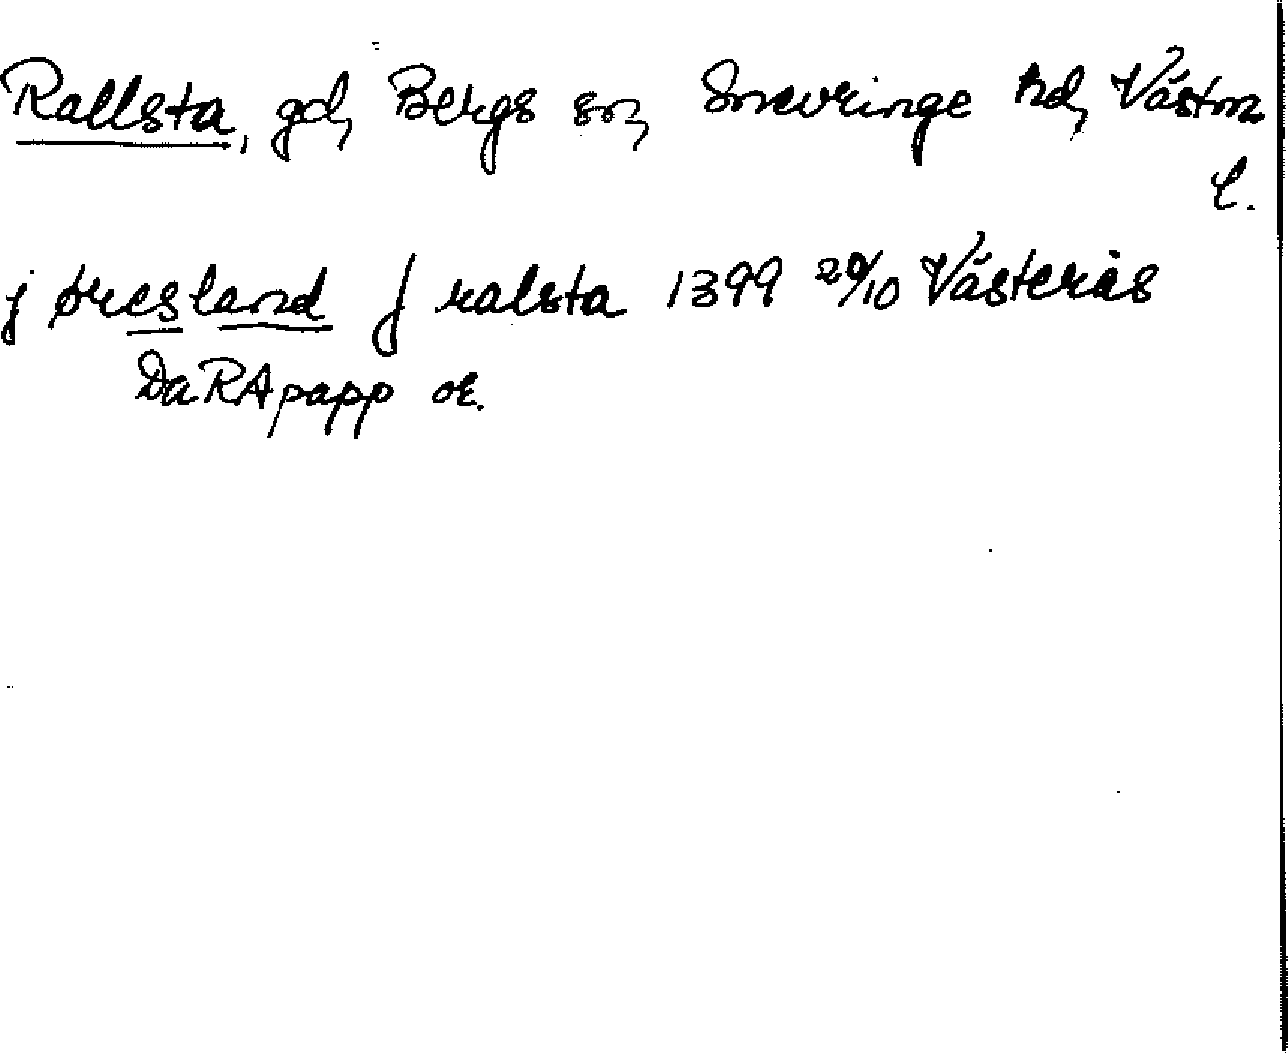 Rallsta, gd, Bergs sn, Snevringe hd, Västm
l.
j øresland J ralsta 1399 20/10 Västerås
DaRApapp or.